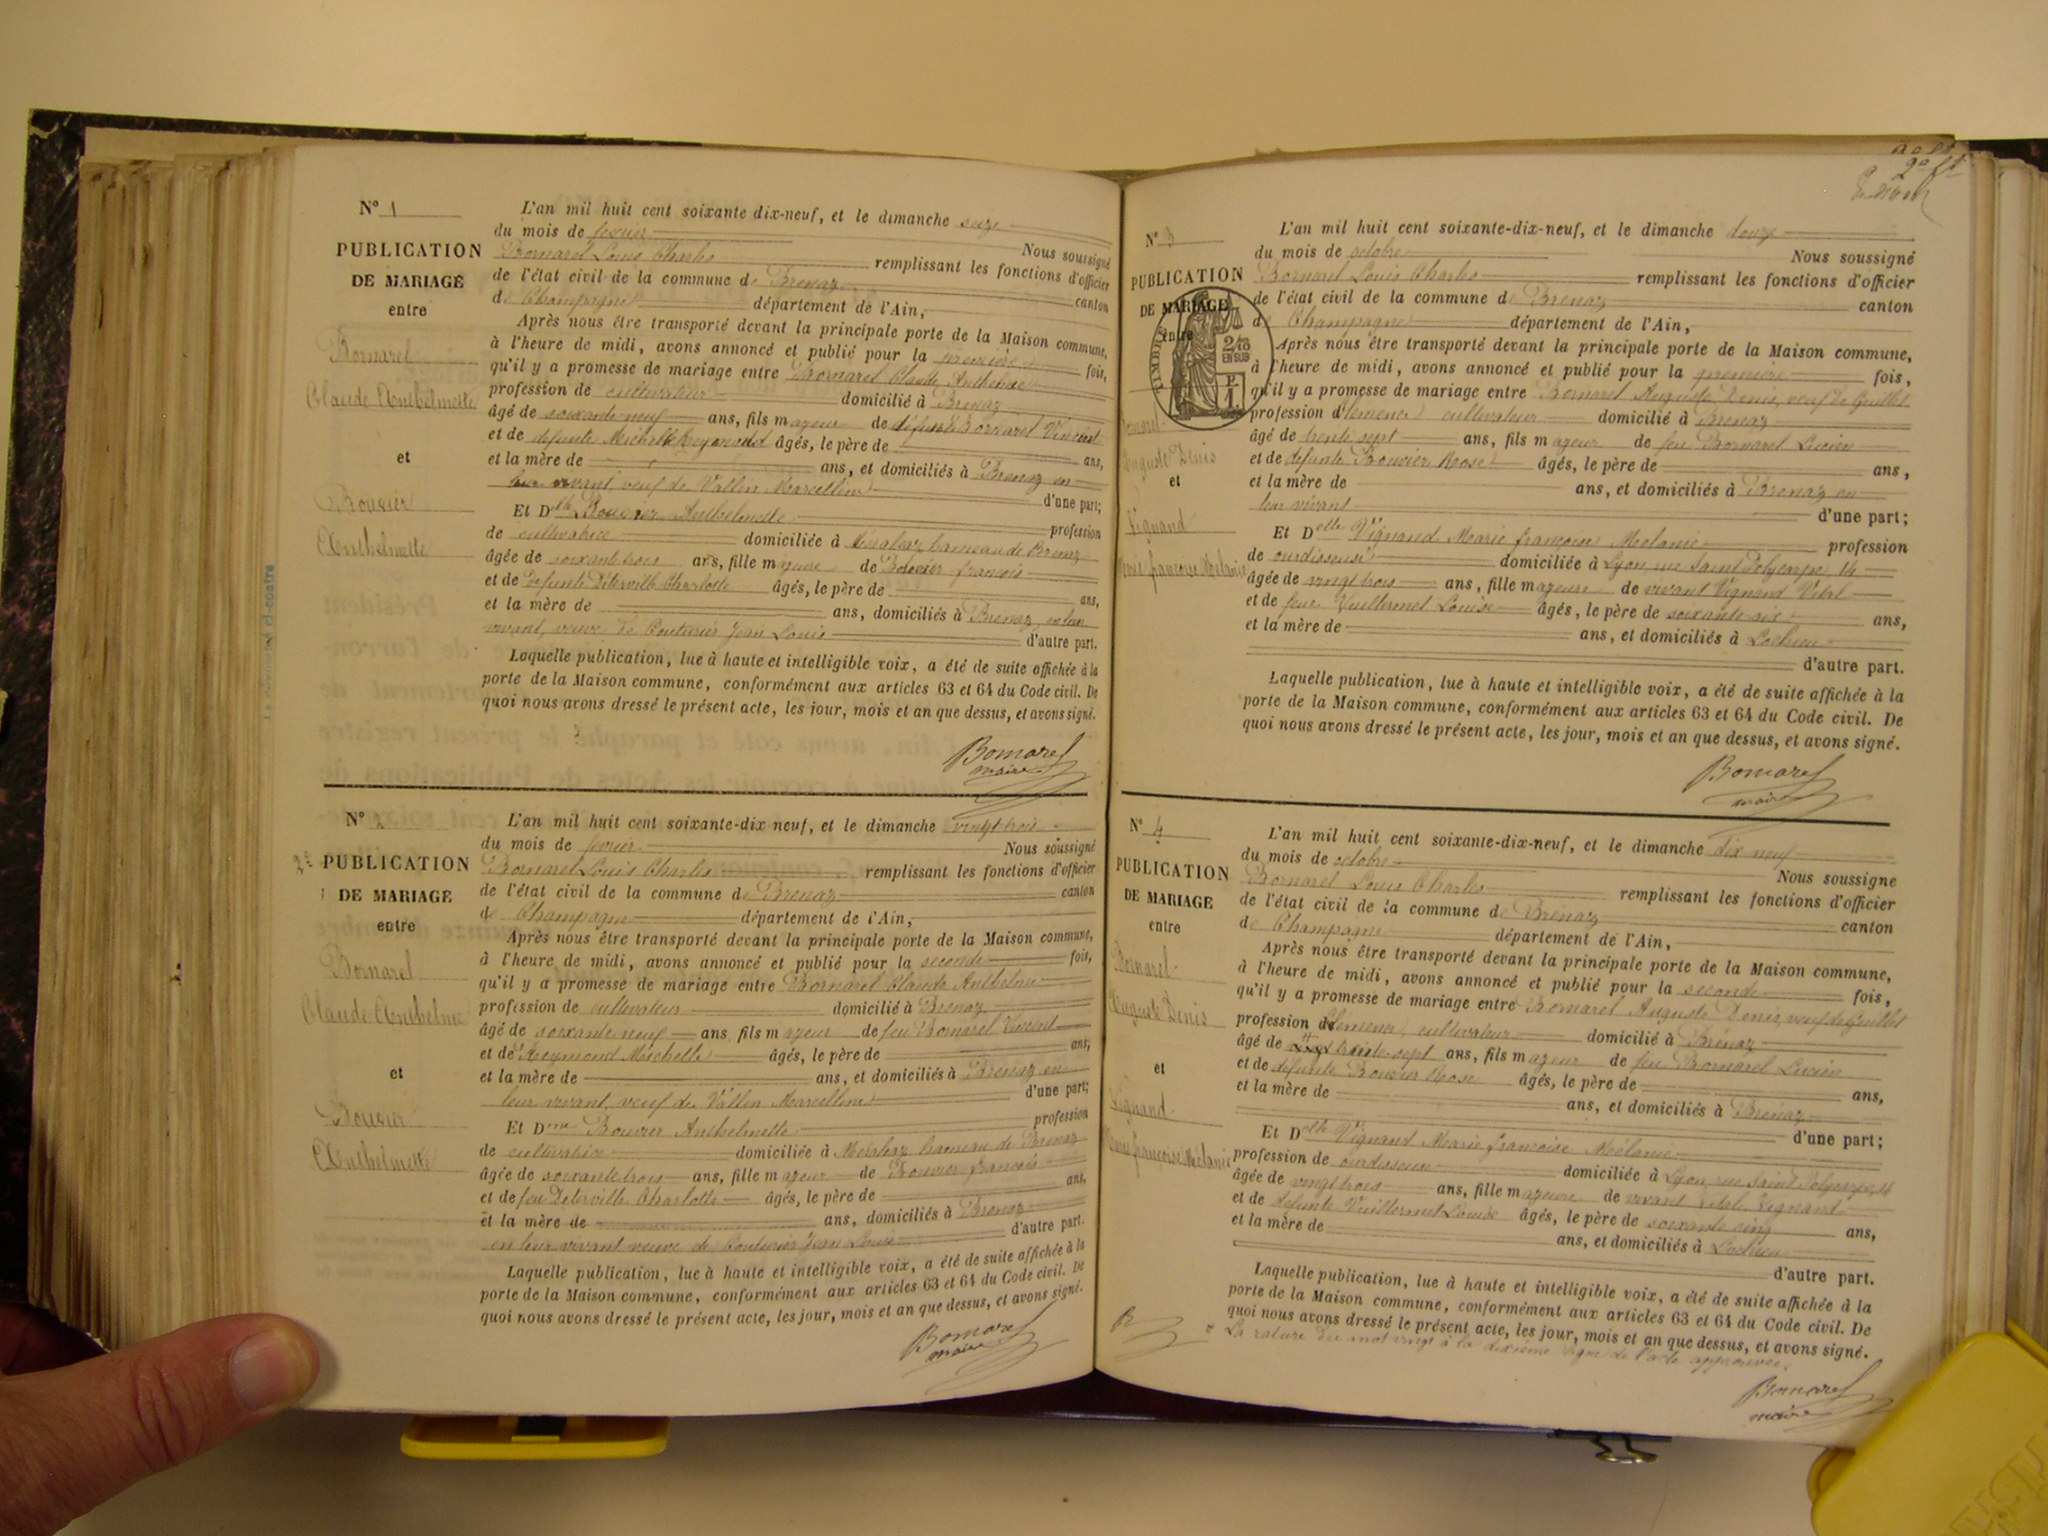 N° 1
PUBLICATION
DE MARIAGE
entre
Bornarel
Claude Anthelmette
et
Bouvier
Anthelmette
L'an mil huit cent soixante dix-neuf, et le dimanche seize
du mois de fevrier Nous soussigné
Bornarel Louis Charles remplissant les fonctions d'officier
de l'état civil de la commune de Brenaz canton
de Champagne département de l'Ain,
Après nous être transporté devant la principale porte de la Maison commune,
à l'heure de midi, avons annoncé et publié pour la première fois,
qu'il y a promesse de mariage entre Bornarel Claude Anthelme
profession de cultivateur domicilié à Brenaz
âgé de soixante neuf ans, fils majeur de défunt Bornarel Vincent
et de defunte Michelle Reymond âgés, le père de ans,
et la mère de ans, et domiciliés à Brenaz en
leur vivant, veuf de Vallin Marcelline d'une part;
Et Dlle Bouvier Anthelmette profession
de cultivatrice domiciliée à hameau de Brenaz
âgée de soixante trois ans, fille majeure de Bouvier françois
et de defunte Déterville Charlotte âgés, le père de ans,
et la mère de ans, domiciliés à Brenaz, en leur
vivant, veuve de Couturier Jean Louis d'autre part.
Laquelle publication, lue à haute et intelligible voix, a été de suite affichée à la
porte de la Maison commune, conformément aux articles 63 et 64 du Code civil. De
quoi nous avons dressé le présent acte, les jour, mois et an que dessus, et avons signé.
Bornarel
maire
N° 2
PUBLICATION
DE MARIAGE
entre
Bornarel
Claude Anthelme
et
Bouvier
Anthelmette
L'an mil huit cent soixante-dix neuf, et le dimanche vingt trois
du mois de fevrier Nous soussigné
Bornarel Louis Charles remplissant les fonctions d'officier
de l'état civil de la commune de Brenaz canton
de Champagne département de l'Ain,
Après nous être transporté devant la principale porte de la Maison commune,
à l'heure de midi, avons annoncé et publié pour la seconde fois,
qu'il y a promesse de mariage entre Bornarel Claude Anthelme
profession de cultivateur domicilié à Brenaz
âgé de soixante neuf ans, fils majeur de feu Bornarel Vincent
et de Reymond Michelle âgés, le père de ans,
et la mère de ans, et domiciliés à Brenaz en
leur vivant, veuf de Vallin Marcelline d'une part;
Et Dme Bouvier Anthelmette profession
de cultivatrice domiciliée à hameau de Brenaz
âgée de soixante trois ans, fille majeur de Bouvier françois
et de feu Déterville Charlotte âgés, le père de ans,
et la mère de ans, domiciliés à Brenaz
en leur vivant veuve de Couturier Jean Louis d'autre part.
Laquelle publication, lue à haute et intelligible voix, a été de suite affichée à la
porte de la Maison commune, conformément aux articles 63 et 64 du Code civil. De
quoi nous avons dressé le présent acte, les jour, mois et an que dessus, et avons signé.
Bornarel
maire
N° 3
PUBLICATION
DE MARIAGE
entre
TIMBRE
EN SUS
Bornarel
Auguste Denis
et
Vignand
Marie françoise Mélanie
L'an mil huit cent soixante-dix-neuf, et le dimanche douze
du mois de octobre Nous soussigné
Bornarel Louis Charles remplissant les fonctions d'officier
de l'état civil de la commune de Brenaz canton
de Champagne département de l'Ain,
Après nous être transporté devant la principale porte de la Maison commune,
à l'heure de midi, avons annoncé et publié pour la première fois,
qu'il y a promesse de mariage entre Bornarel Auguste Denis, veuf de Guillot
profession Clemence cultivateur domicilié à Brenaz
âgé de trente sept ans, fils majeur de feu Bornarel Lucien
et de defunte Bouvier Rose âgés, le père de ans,
et la mère de ans, et domiciliés à Brenaz en
leur vivant d'une part;
Et Delle Vignand Marie françoise Mélanie profession
de ourdisseuse domiciliée à Lyon rue Saint Polycarpe, 14
âgée de vingt trois ans, fille majeure de vivant Vignand Vital
et de feue Vuillermet Louise âgés, le père de soixante six ans,
et la mère de ans, et domiciliés à Lochieu
d'autre part.
Laquelle publication, lue à haute et intelligible voix, a été de suite affichée à la
porte de la Maison commune, conformément aux articles 63 et 64 du Code civil. De
quoi nous avons dressé le présent acte, les jour, mois et an que dessus, et avons signé.
Bornarel
maire
N° 4
PUBLICATION
DE MARIAGE
entre
Bornarel
Auguste Denis
et
Vignand
Marie françoise Mélanie
L'an mil huit cent soixante-dix-neuf, et le dimanche dix neuf
du mois de octobre Nous soussigné
Bornarel Louis Charles remplissant les fonctions d'officier
de l'état civil de la commune de Brénaz canton
de Champagne département de l'Ain,
Après nous être transporté devant la principale porte de la Maison commune,
à l'heure de midi, avons annoncé et publié pour la seconde fois,
qu'il y a promesse de mariage entre Bornarel Auguste Denis, veuf de Guillot
profession de Clemence, cultivateur domicilié à Brénaz
âgé de trente sept ans, fils majeur de feu Bornarel Lucien
et de défunte Bouvier Rose âgés, le père de ans,
et la mère de ans, et domiciliés à Brénaz
Et Dlle Vignand Marie françoise Mélanie d'une part;
profession de ourdisseuse domiciliée à Lyon, rue Saint Polycarpe, 14
âgée de vingt trois ans, fille majeure de vivant Vital Vignand
et de défunte Vuillermet Louise âgés, le père de soixante cinq ans,
et la mère de ans, et domiciliés à Lochieu
d'autre part.
Laquelle publication, lue à haute et intelligible voix, a été de suite affichée à la
porte de la Maison commune, conformément aux articles 63 et 64 du Code civil. De
quoi nous avons dressé le présent acte, les jour, mois et an que dessus, et avons signé.
La rature du mot vingt à la dixième ligne de l'acte approuvée.
Bornarel
maire